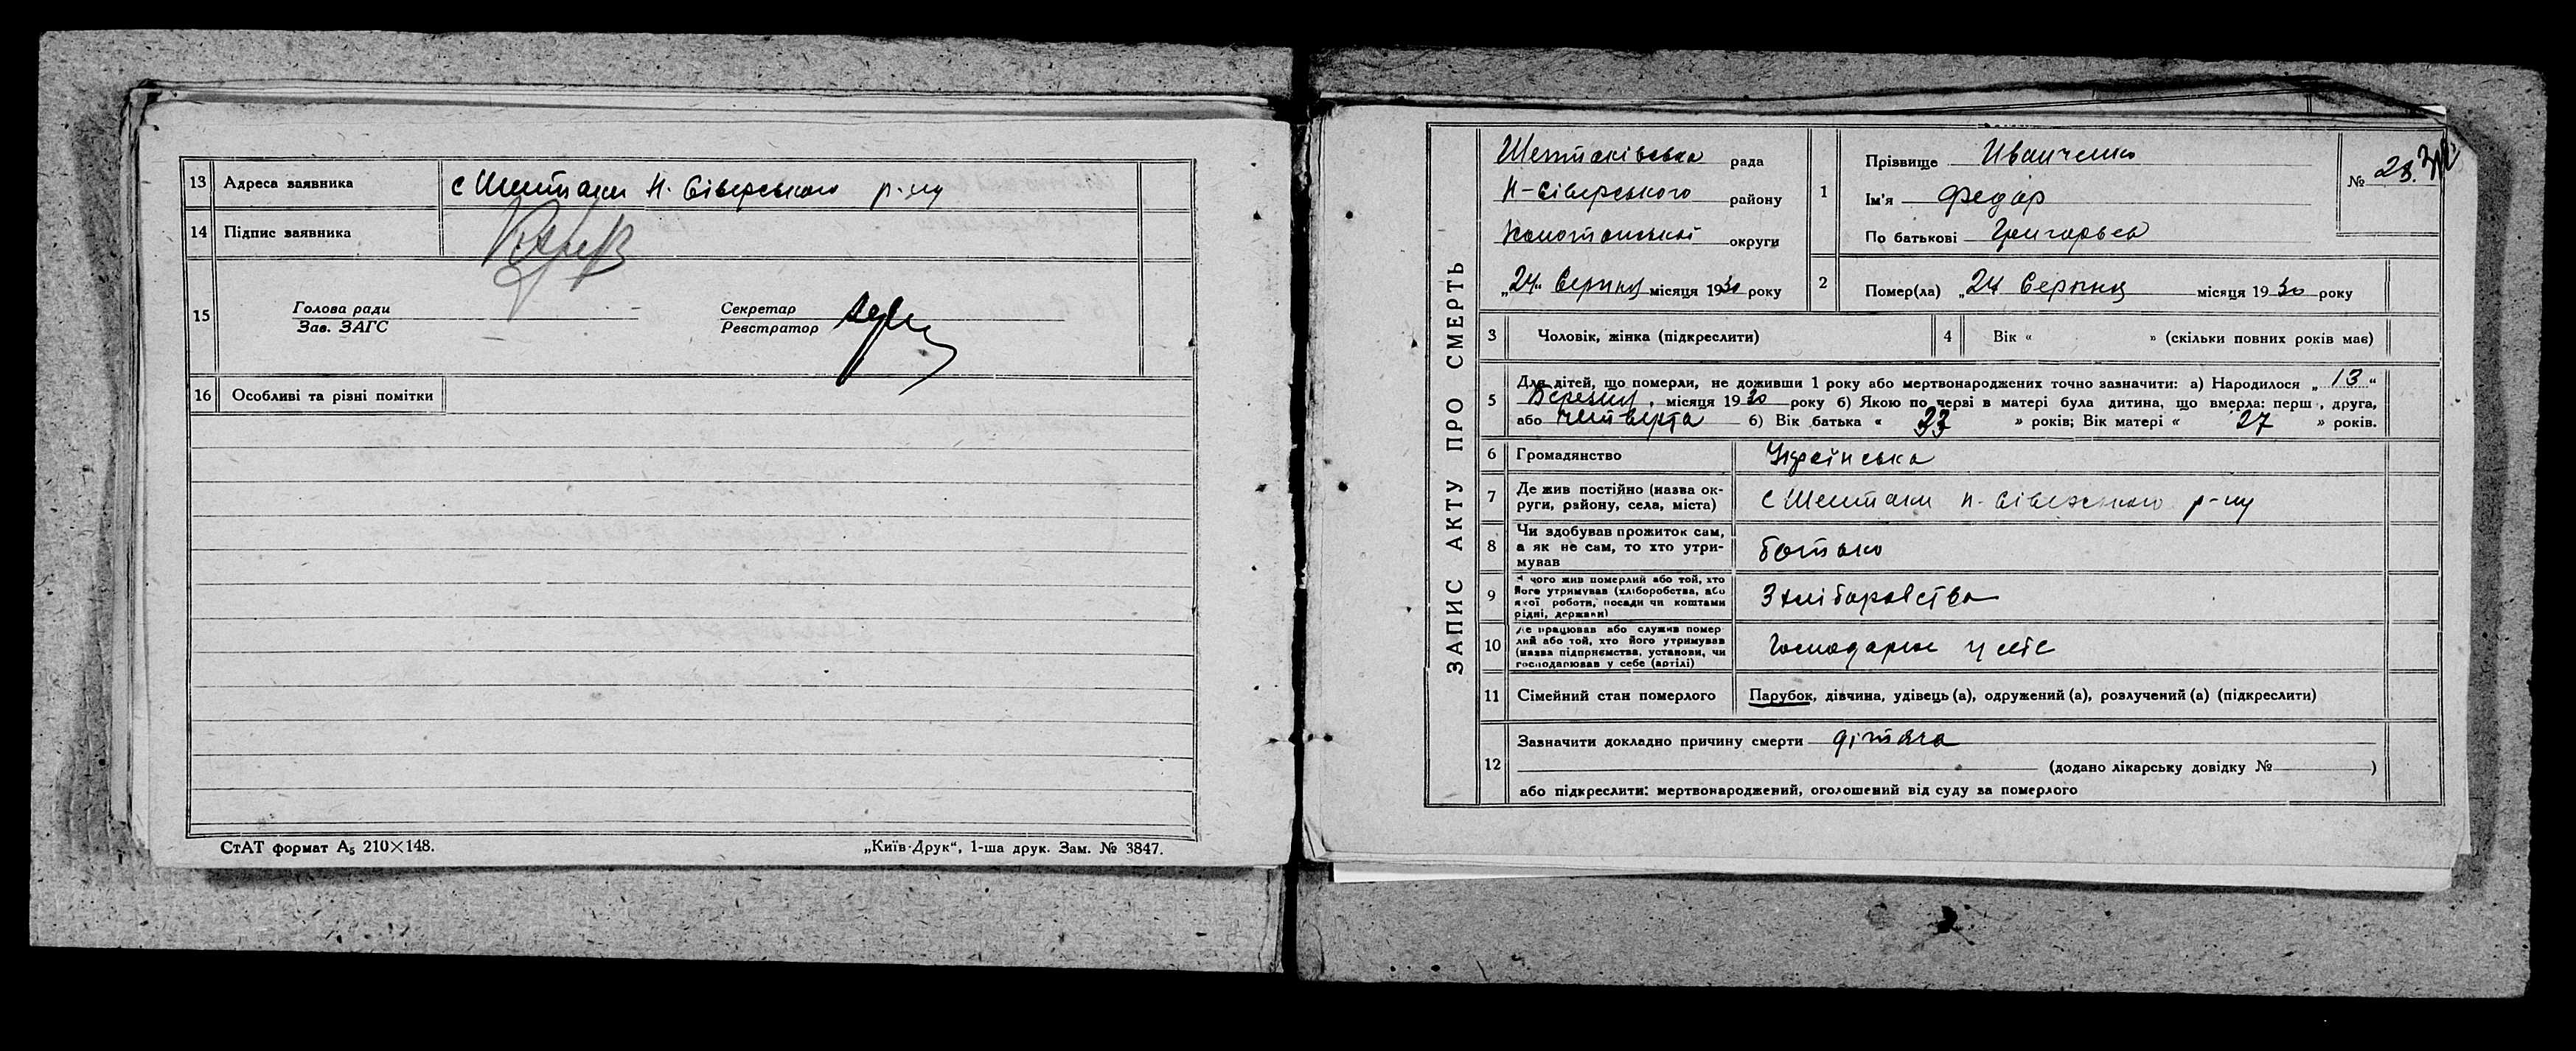 13 Адреса заявника с Шептаки Н. Сіверського р-ну
14 Підпис заявника
15 Голова ради
Зав. ЗАГС
Секретар
Реєстратор
16 Особливі та різні помітки
СтАТ формат А5 210×148.
„Київ-Друк“, 1-ша друк. Зам. № 3847.
ЗАПИС АКТУ ПРО СМЕРТЬ
Шептаківська рада
Н-Сіверського району
Конотопської округи
„24“ Серпня місяця 1930 року
1 Прізвище Иванченко
Ім'я Федор
По батькові Григорьев
№ 28.
2 Помер(ла) „24 Серпня місяця 1930 року
3 Чоловік, жінка (підкреслити)
4 Вік « » (скільки повних років має)
5 Для дітей, що померли, не доживши 1 року або мертвонароджених точно зазначити: а) Народилося „13“
Березня, місяця 1930 року б) Якою по черві в матері була дитина, що вмерла: перш, друга,
або четверта б) Вік батька « 33 » років; Вік матері « 27 » років.
6 Громадянство Українська
7 Де жив постійно (назва ок-
руги, району, села, міста) с Шептаки Н-Сіверського р-ну
8 Чи здобував прожиток сам,
а як не сам, то хто утри-
мував батько
9 З чого жив померлий або той, хто
його утримував (хліборобства, або
якої роботи, посади чи коштами
рідні, держави) З хліборобства
10 Де працював або служив помер
лий або той, хто його утримував
(назва підприємства, установи, чи
господарював у себе (артілі) Господарює у себе
11 Сімейний стан померлого Парубок, дівчина, удівець (а), одружений (а), розлучений (а) (підкреслити)
12 Зазначити докладно причину смерти дітяча
(додано лікарську довідку № )
або підкреслити: мертвонароджений, оголошений від суду за померлого